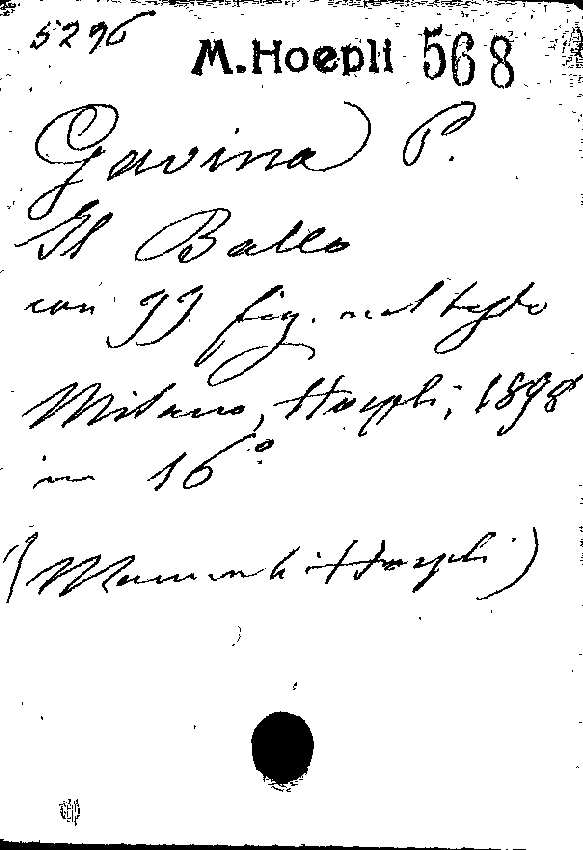 5296
M. Hoepli 568
Gavina P.
Il Ballo
con 99 fig. nel testo
Milano, Hoepli, 1898
in 16°
(Manuali Hoepli)